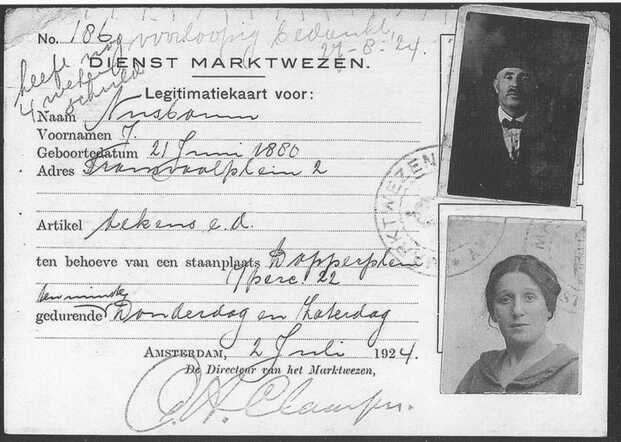 No. 186 voorloopig bedankt,
27-8-'24.
heeft nog
4 weken
schuld
DIENST MARKTWEZEN.
Legitimatiekaart voor:
Naam Nusbaum
Voornamen J.
Geboortedatum 21 Juni 1880
Adres Transvaalplein 2
Artikel dekens e.d.
ten behoeve van een staanplaats Dapperplein
perc. 22
ten minste
gedurende Donderdag en Zaterdag
AMSTERDAM, 2 Juli 1924.
De Directeur van het Marktwezen,
MARKTWEZEN